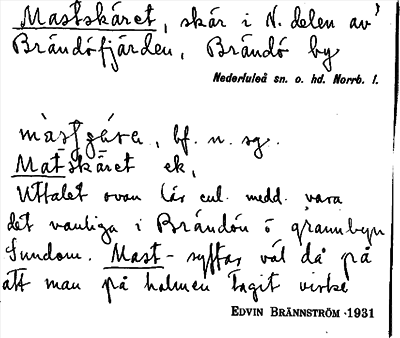 Mastskäret, skär i N. delen av
Brändöfjärden, Brändö by
Nederluleå sn. o. hd. Norrb. l.
bf. n. sg.
Matskäret ek,
Uttalet ovan lär enl. medd. vara
det vanliga i Brändön o grannbyn
Sundom. Mast- syftar väl då på
att man på holmen tagit virke
EDVIN BRÄNNSTRÖM 1931